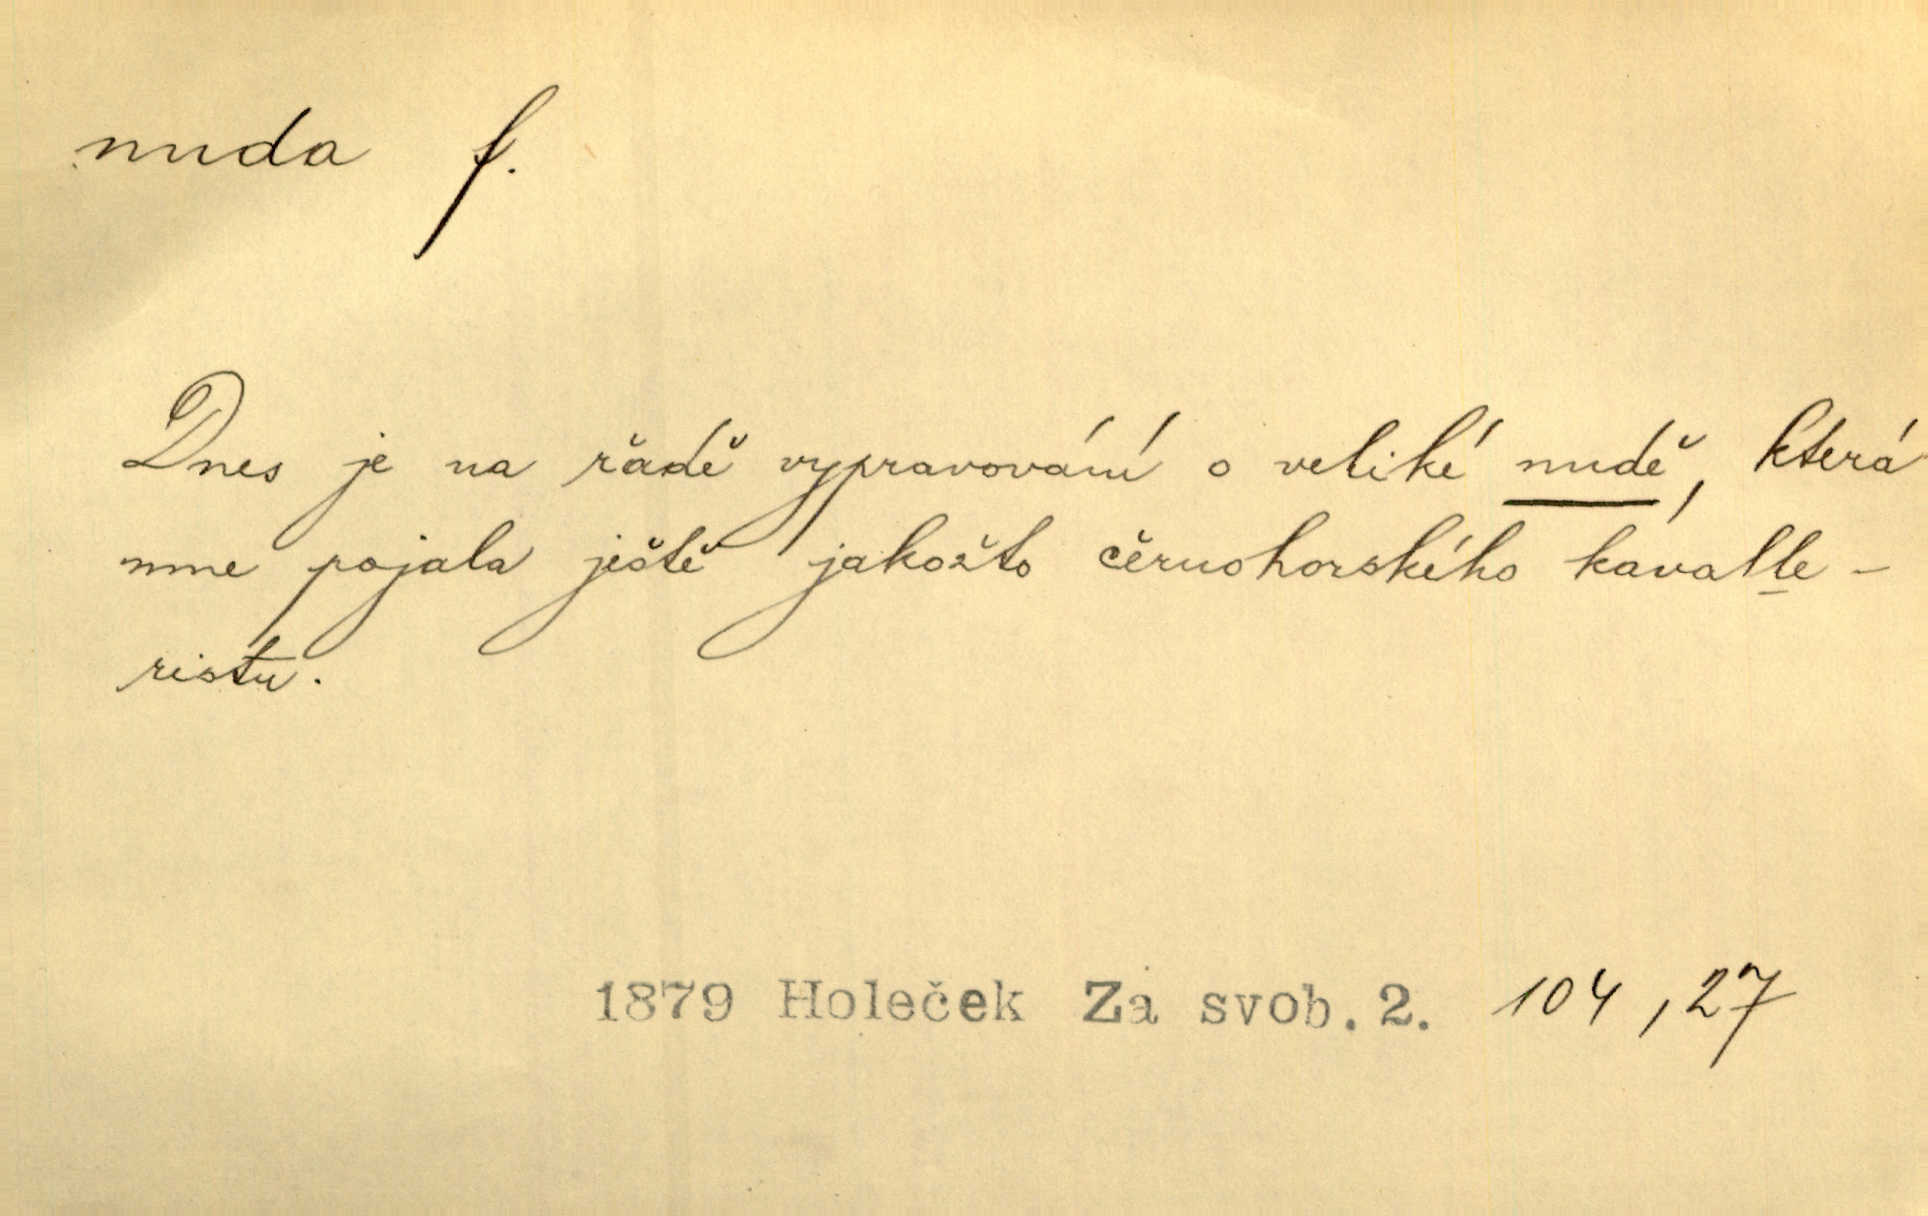 nuda f.
Dnes je na řadě vypravování o veliké nudě, která
mne pojala ještě jakožto černohorského kavalle-
ristu.
1879 Holeček Za svob. 2. 104, 27